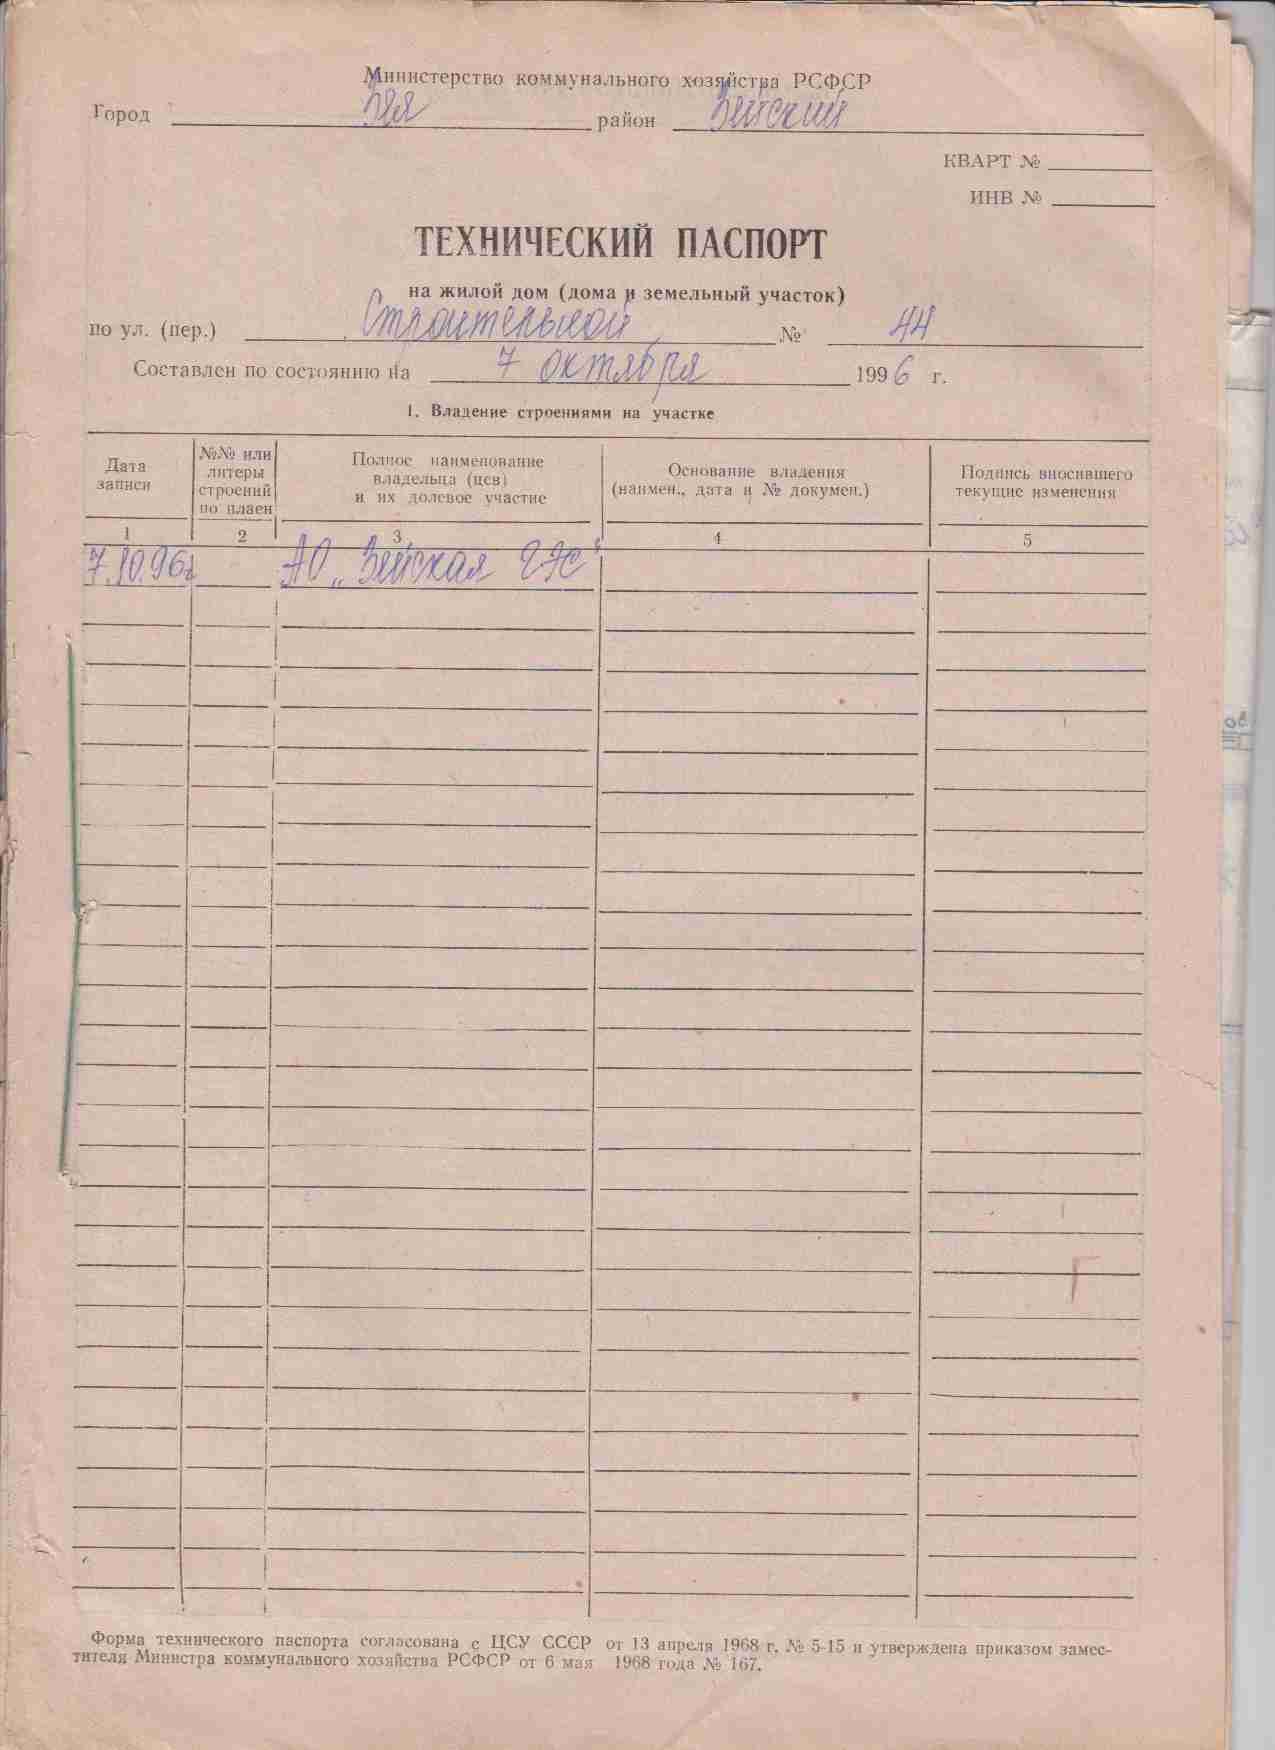 Министерство коммунального хозяйства РСФСР
Город Зея район Зейский
КВАРТ №
ИНВ №
ТЕХНИЧЕСКИЙ ПАСПОРТ
на жилой дом (дома и земельный участок)
по ул. (пер.) Строительной № 44
Составлен по состоянию на 7 октября 1996 г.
1. Владение строениями на участке
Дата записи
№№ или литеры строений по плаен
Полное наименование владельца (цев) и их долевое участие
Основание владения (наимен., дата и № докумен.)
Подпись вносившего текущие изменения
1 2 3 4 5
7.10.96г АО „Зейская ГЭС“
Форма технического паспорта согласована с ЦСУ СССР от 13 апреля 1968 г. № 5-15 и утверждена приказом замес-
тителя Министра коммунального хозяйства РСФСР от 6 мая 1968 года № 167.